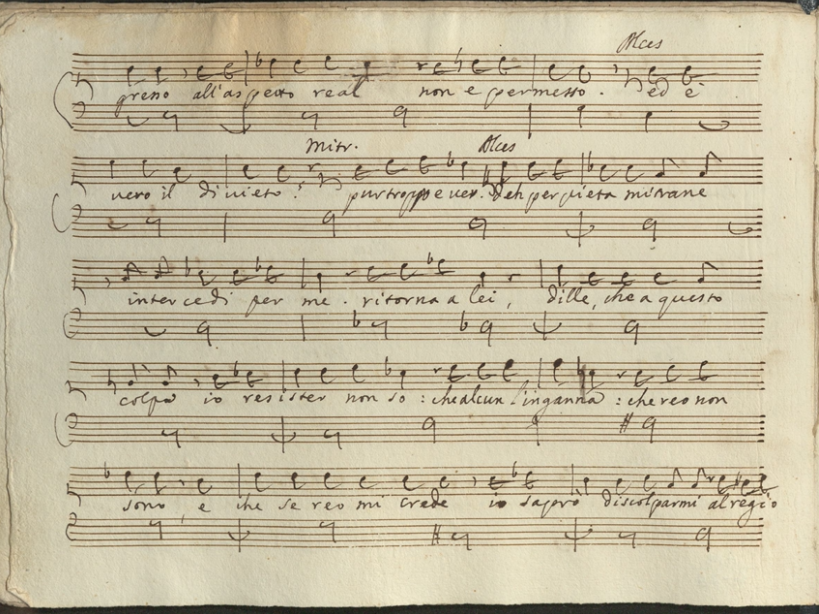 Alces
greno all'aspetto real non e permesso. ed è
Mitr. Alces
vero il divieto? pur tropp e ver. Deh per pieta mitrane
intercedi per me. ritorna a lei, dille, che a questo
colpo io resister non so: che alcun l'inganna: che reo non
sono, e che se reo mi crede io saprò discolparmi al regio